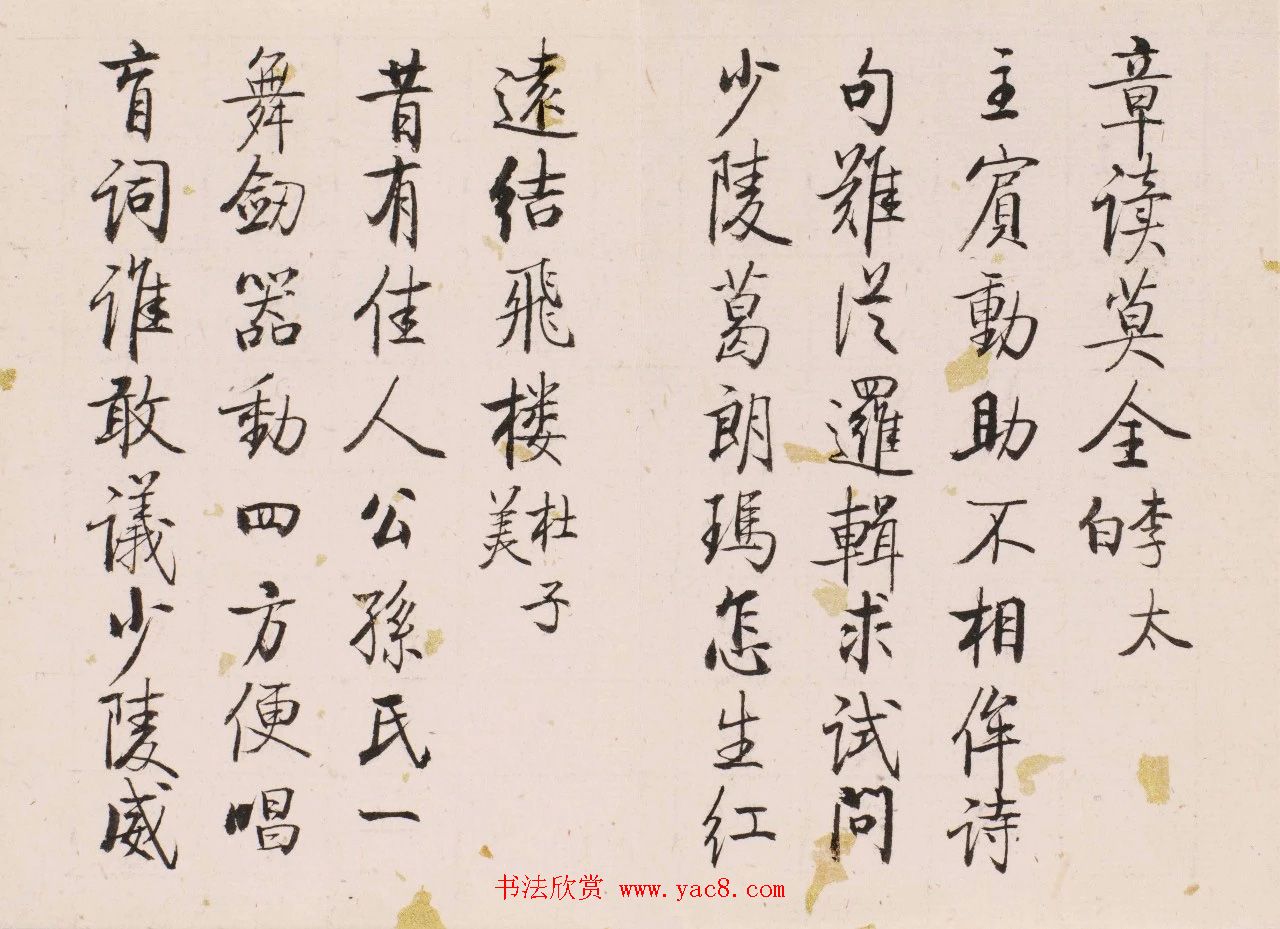 章读莫全李太白
主賓動助不相侔诗
句難従邏輯求试問
少陵葛朗瑪怎生红
遠结飛楼杜子美
昔有佳人公孫氏一
舞劒器動四方便唱
盲词谁敢議少陵威
书法欣赏 www.yac8.com